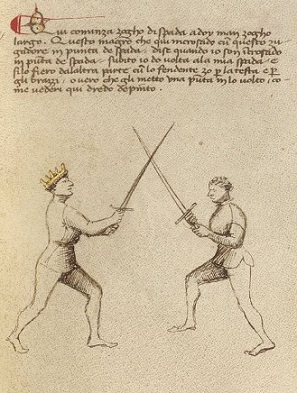 Qui cominza zogho di spada a doy man zogho
largo. Questo magro che qui incrosado cum questo zu-
gadore in punta de spada, dise quando io son incrosado
in punta de spada, subito io do volta ala mia spada e
filo fiero dalaltra parte cum lo fendente zo per la testa e per
gli brazzi, overo che gli metto una punta in lo volto, co-
me vederi qui dredo depinto.